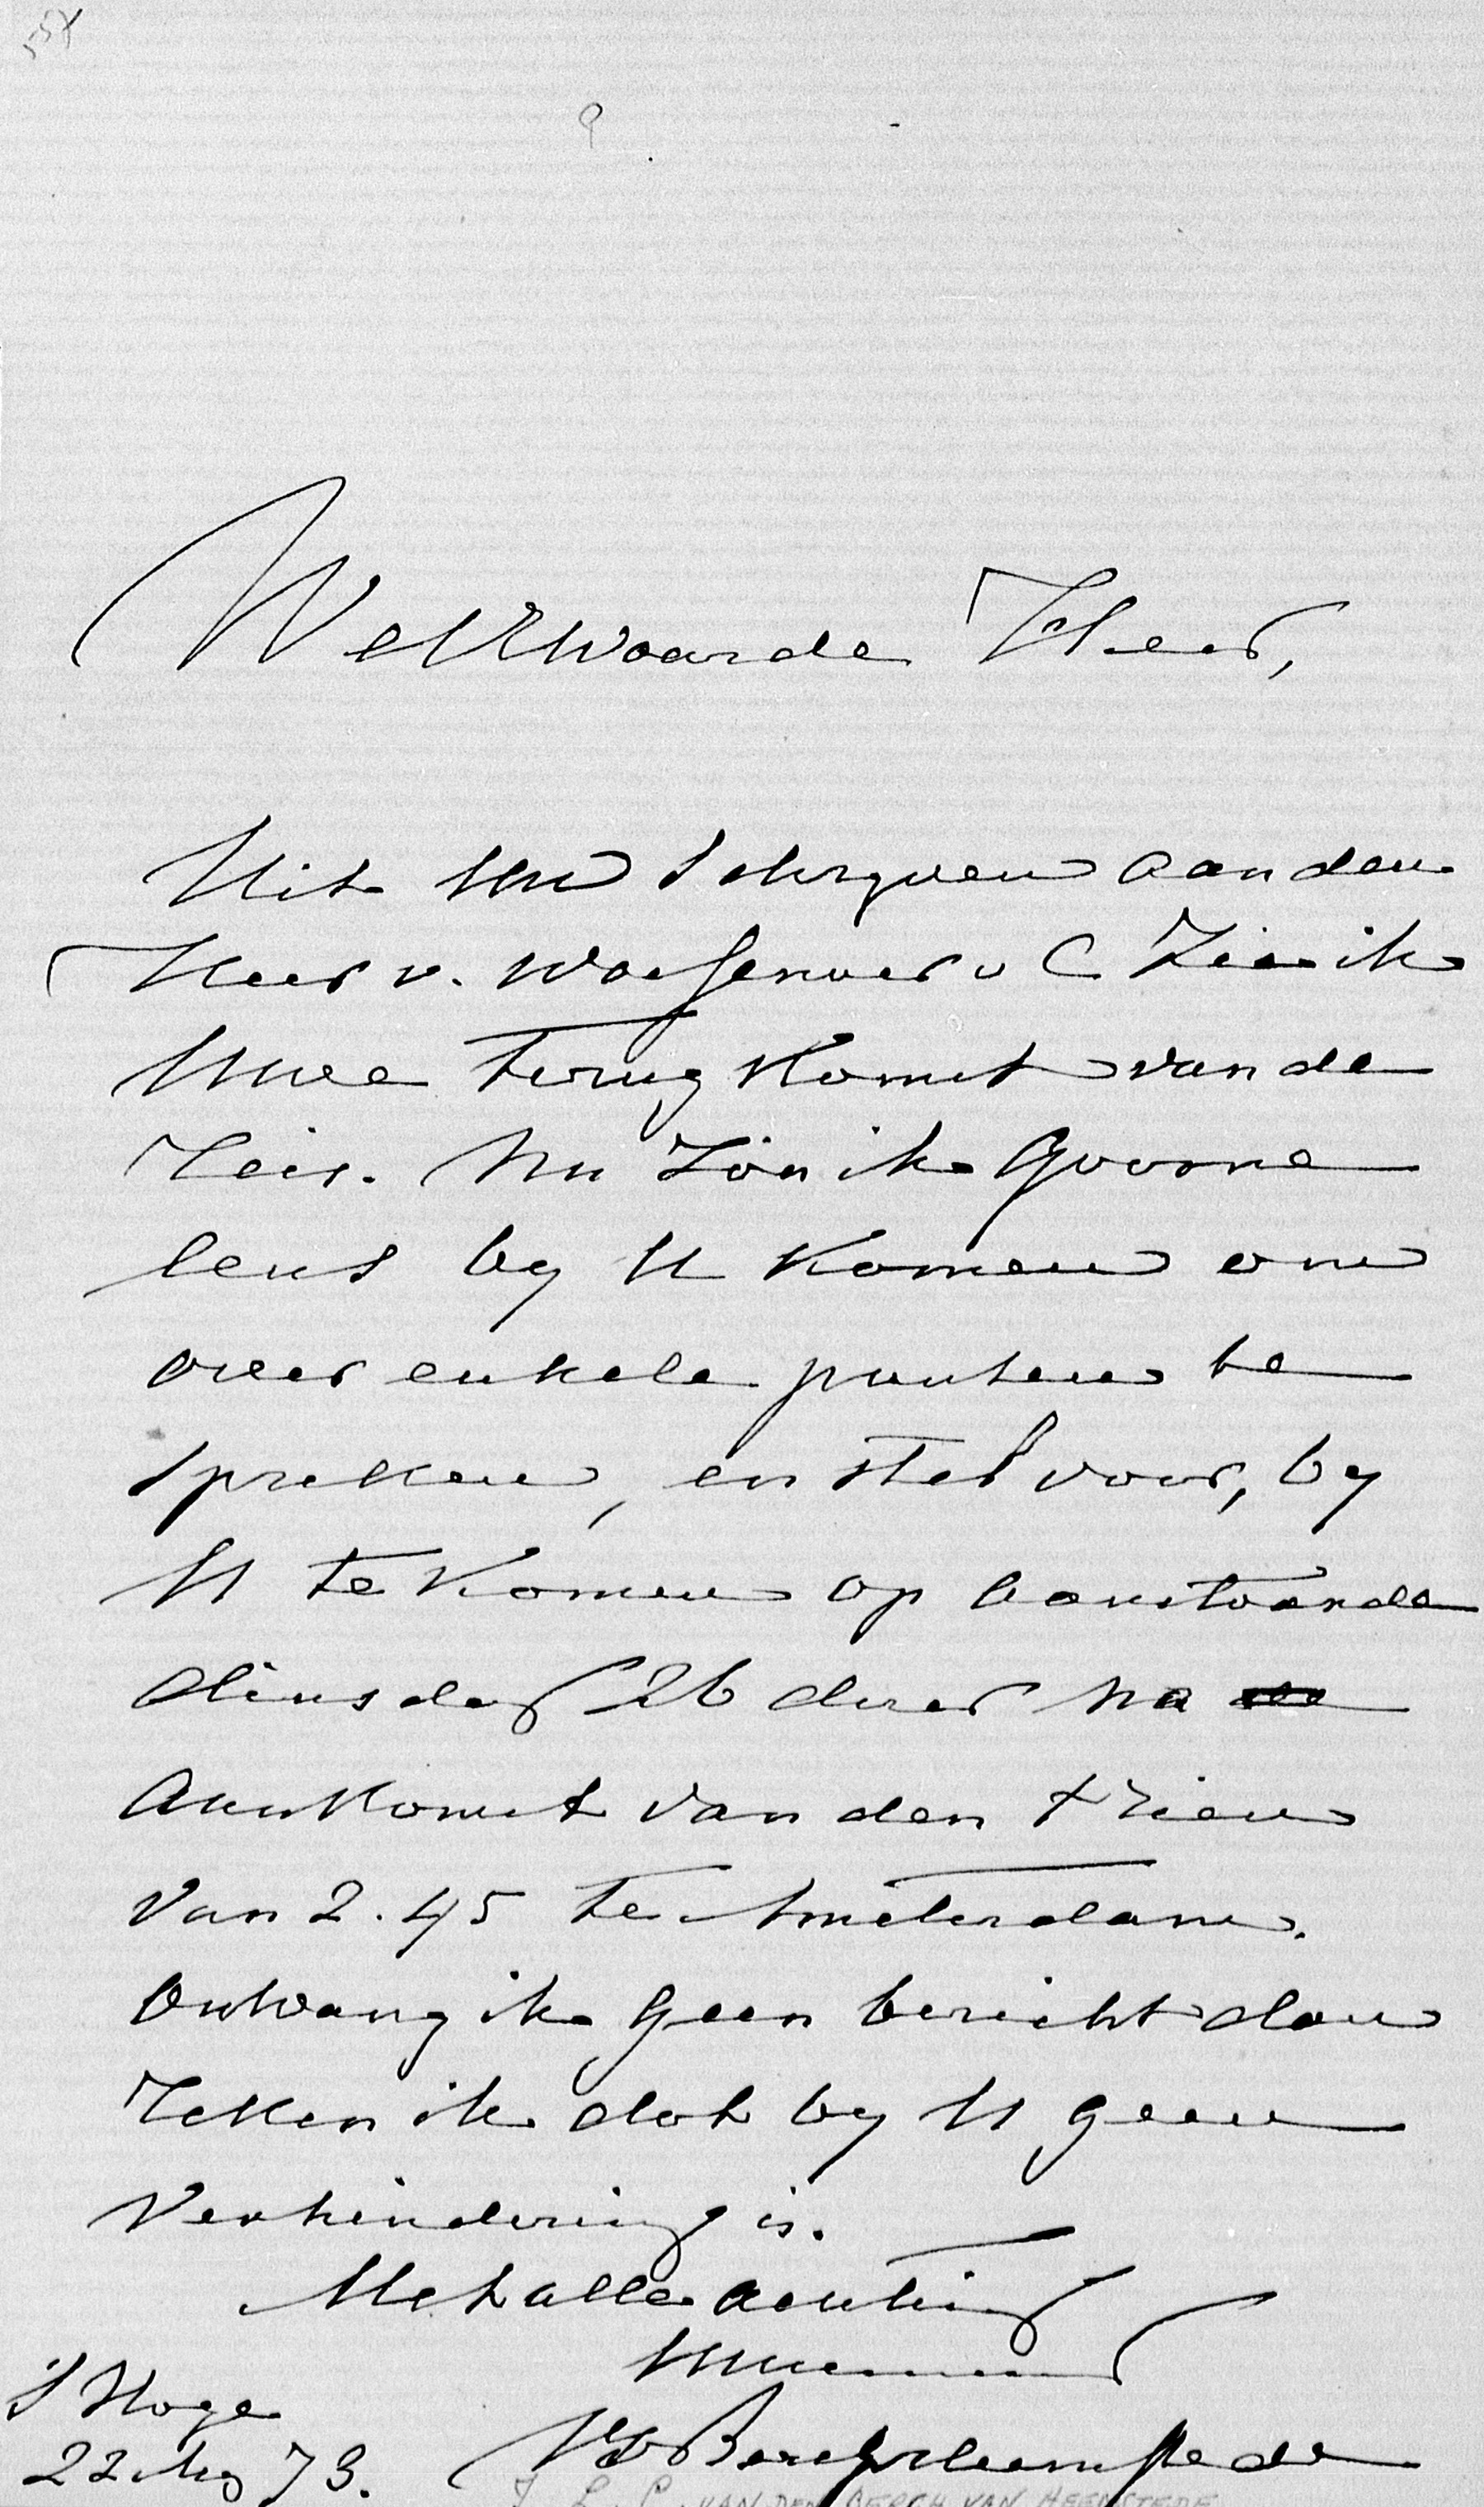 WelEWaarde Heer,
Uit Uw schryven aan den
Heer v. Wassenaer v C zie ik
Uwe terugkomst van de
reis. Nu zou ik gaarne
eens by U komen om
over enkele punten te
spreken, en stel voor, by
U te komen op aanstaande
dinsdag 26 dezer na
aankomst van den trein
van 2.45 te Amsterdam.
Ontvang ik geen bericht dan
reken ik dat by U geen
verhindering is.
Met alle achting
s Hage
22 Aug 73.
vd Bergh v Heemstede
J. L. C. VAN DEN BERGH VAN HEEMSTEDE